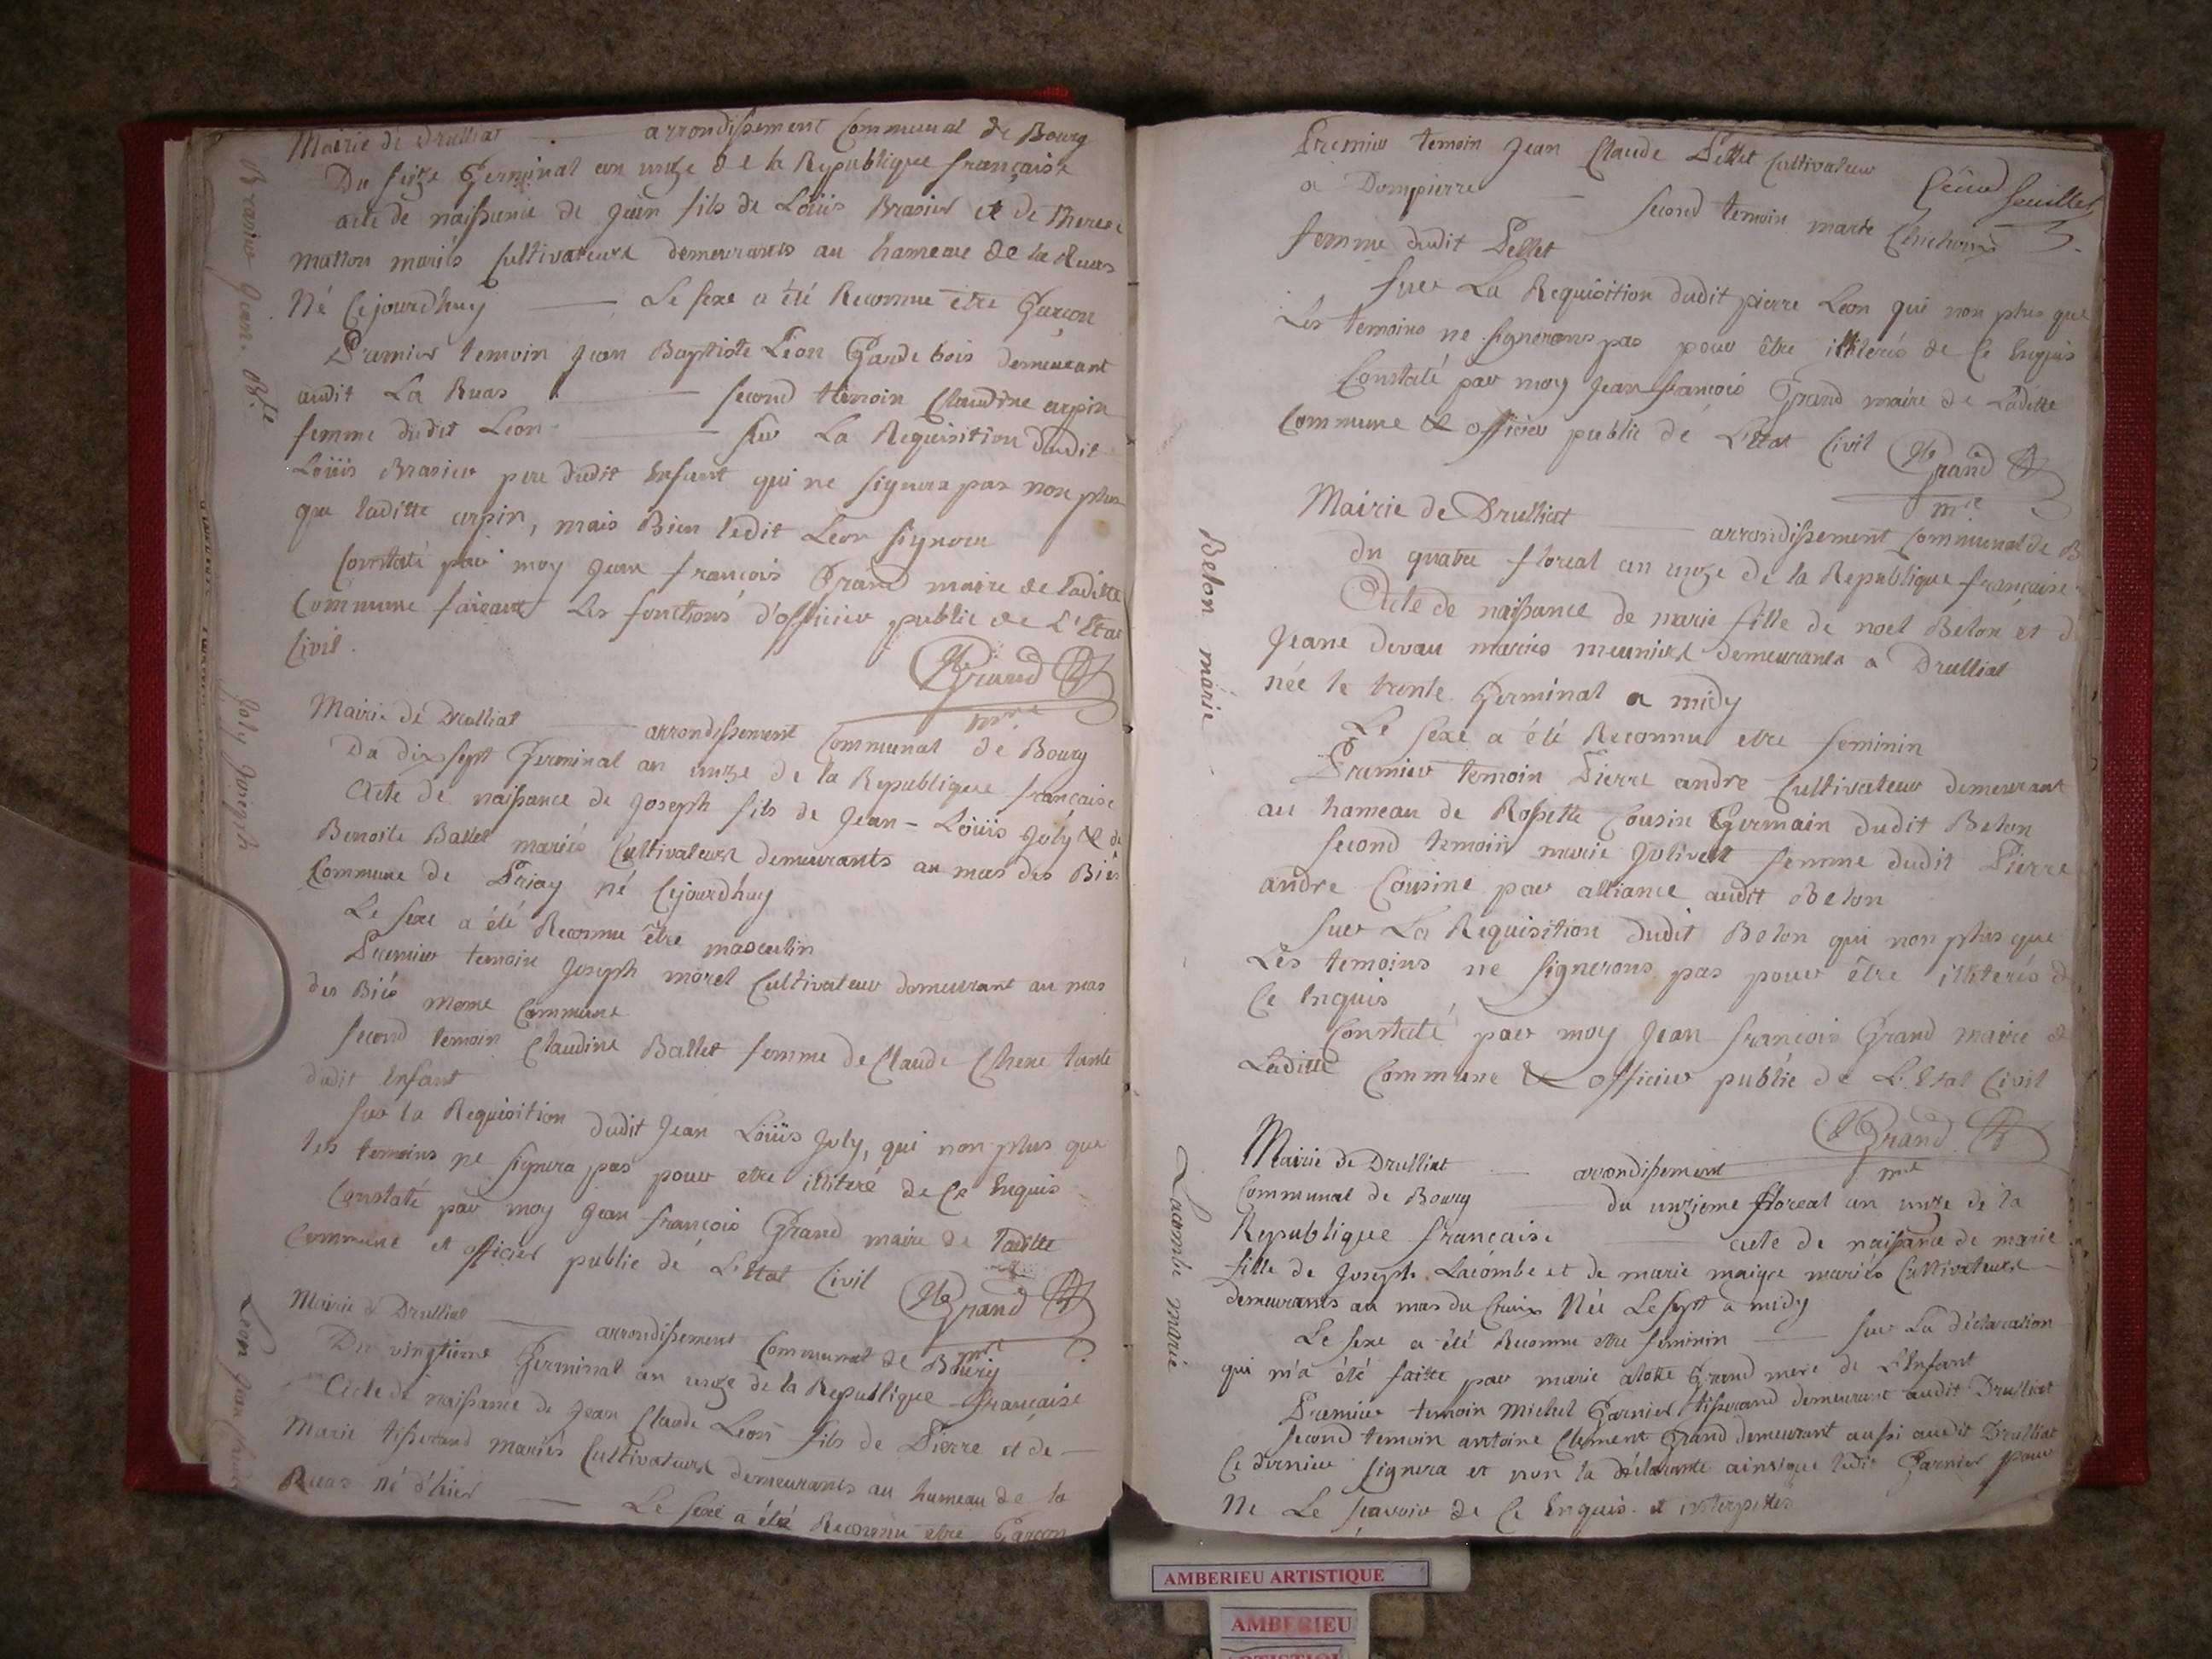 Mairie de Drulliat — arrondissement Communal de Bourg
Du seize Germinal an unze de la Republique française
acte de naissance de Jean fils de Loüis Brasier et de Therese
matton mariés Cultivateurs demeurants au hameau de la Ruas
Né Cejourd'huy — Le sexe a été Reconnu etre Garçon
Premier temoin Jean Baptiste Léon Garde bois demeurant
audit La Ruas — second témoin Claudine arpin
femme dudit Leon — sur La Requisition dudit
Loüis Brasier pere dudit Enfant qui ne signera pas non plus
que laditte arpin, mais Bien ledit Leon signera
Constaté par moy Jean françois Grand maire de laditte
Commune faisant Les fonctions d'officier public de L'Etat
Civil.
Grand
mre
Brasier Jean Bte
Mairie de Drulliat — arrondissement Communal de Bourg
Du dix sept Germinal an unze de la Republique française
Acte de naissance de Joseph fils de Jean-Loüis Joly & de
Benoite Ballet mariés Cultivateurs demeurants au mas des Biés
Commune de Priay né Cejourdhuy
Le sexe a été Reconnu être masculin
Premier temoin Joseph morel Cultivateur demeurant au mas
des Biés meme Commune
second temoin Claudine Ballet femme de Claude Chene tante
dudit Enfant
sur la Requisition dudit Jean Loüis Joly, qui non plus que
les temoins ne signera pas pour etre illiteré de Ce Enquis
Constaté par moy Jean françois Grand maire de laditte
Commune et officier public de L'Etat Civil
Grand
mre
Joly Joseph
Mairie de Drulliat — arrondissement Communal de Bourg
Du vingtieme Germinal an unze de la Republique française
Acte de naissance de Jean Claude Leon fils de Pierre et de
Marie tisserand mariés Cultivateurs demeurants au hameau de la
Ruas né d'hier — Le sexe a été Reconnu etre Garcon
Leon Jean Claude
Premier temoin Jean Claude Pellet Cultivateur
a Dompierre — second temoin marie
femme dudit Pellet
feuillet
sur La Requisition dudit pierre Leon qui non plus que
Les temoins ne signerons pas pour être illiterés de Ce Enquis
Constaté par moy Jean françois Grand maire de Laditte
Commune & officier public de L'Etat Civil
Grand
mre
Mairie de Drulliat — arrondissement Communal de B
du quatre floreal an unze de la Republique française
Acte de naissance de marie fille de noel Belon et d
Jeane devau mariés meuniers demeurants a Drulliat
née le trente Germinal a midy
Le sexe a été Reconnu etre feminin
Premier temoin Pierre andre Cultivateur demeurant
au hameau de Rossette Cousin Germain dudit Belon
second temoin marie Jolivet femme dudit Pierre
andre Cousine par alliance audit Belon
sur La Requisition dudit Belon qui non plus que
Les temoins ne signerons pas pour être illiterés d
Ce Enquis
Constaté par moy Jean françois Grand maire d
Laditte Commune & officier public de L'Etat Civil
Grand
mre
Belon marie
Mairie de Drulliat — arrondissement
Communal de Bourg — du unzieme floreal an unze de la
Republique francaise — acte de naissance de marie
fille de Joseph Lacombe et de marie maigre mariés Cultivateurs
demeurants au mas du Chaix Née Le sept a midy
Le sexe a été Reconnu etre feminin — sur La déclaration
qui m'a été faitte par marie alotte Grand mere de L'Enfant
Premier temoin Michel Garnier tisserand demeurant audit Drulliat
second temoin antoine Clement Grand demeurant aussi audit Drulliat
Ce dernier signera et non la déclarante ainsique ledit Garnier pour
Ne Le scavoir de Ce Enquis et interpellés
Lacombe marie
AMBERIEU ARTISTIQUE
AMBERIEU
ARTISTIQUE